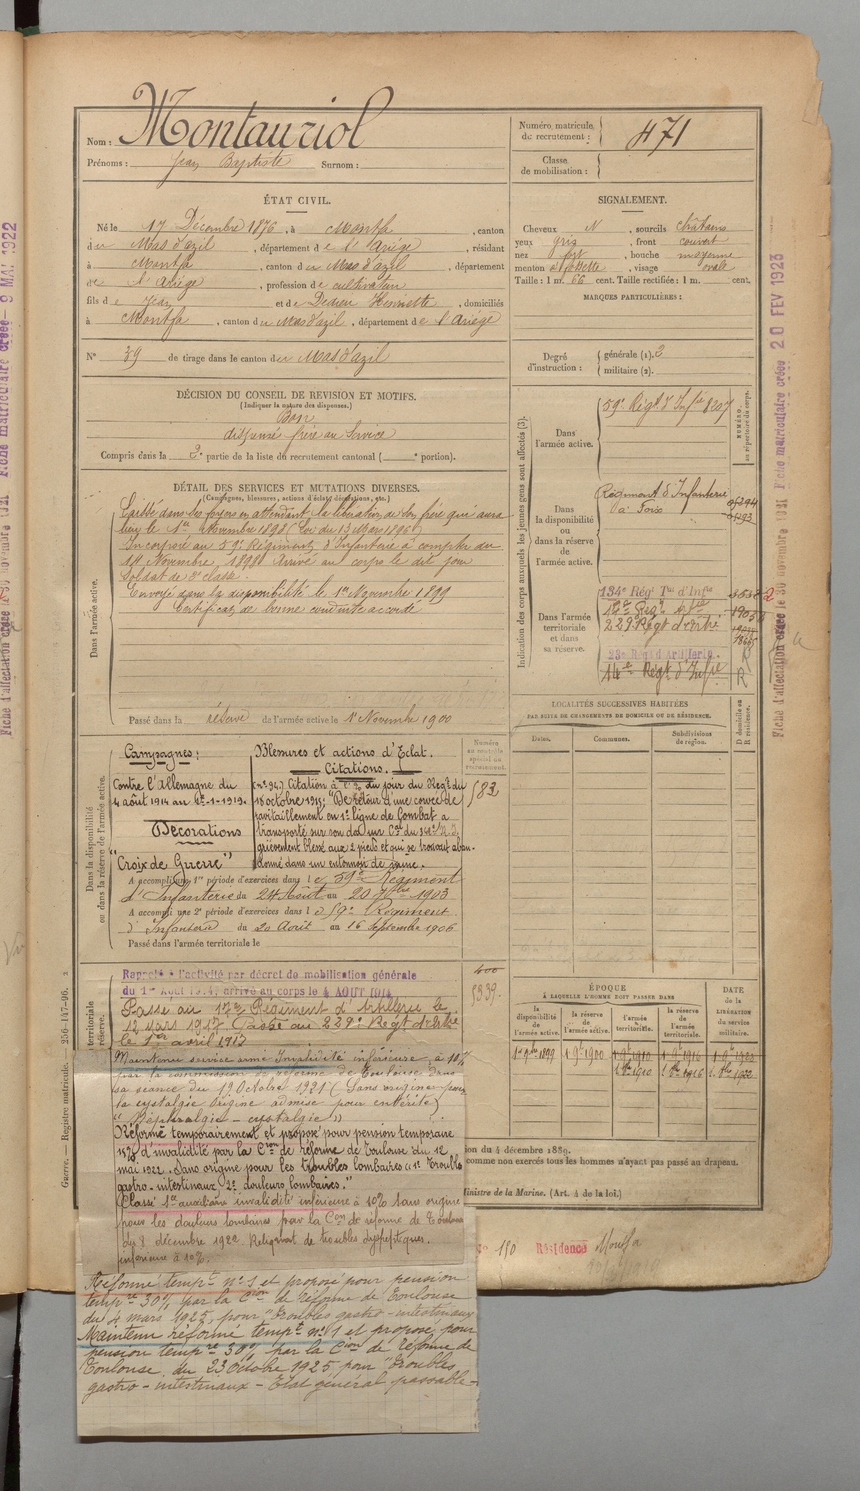 Nom : Montauriol
Prénoms : Jean Baptiste Surnom :
Numéro matricule du recrutement : 471
Classe de mobilisation :
ÉTAT CIVIL.
Né le 17 Décembre 1876, à Montfa, canton
du Mas d'azil, département de l'Ariège, résidant
à Montfa, canton du Mas d'azil, département
de l'Ariège, profession de cultivateur
fils de Jean et de Dedieu Henriette, domiciliés
à Montfa, canton du Mas d'azil, département de l'Ariège
N° 39 de tirage dans le canton du Mas d'azil
SIGNALEMENT.
Cheveux N, sourcils châtains
yeux gris, front couvert
nez fort, bouche moyenne
menton à fossette, visage ovale
Taille : 1 m. 66 cent. Taille rectifiée : 1 m. cent.
MARQUES PARTICULIÈRES :
Degré d'instruction : générale (1). 3
militaire (2).
DÉCISION DU CONSEIL DE REVISION ET MOTIFS.
(Indiquer la nature des dispenses.)
Bon
dispensé frère au Service
Compris dans la 2e partie de la liste du recrutement cantonal ( e portion).
DÉTAIL DES SERVICES ET MUTATIONS DIVERSES.
(Campagnes, blessures, actions d'éclat, décorations, etc.)
Dans l'armée active.
Laissé dans ses foyers en attendant la libération de son frère qui aura
lieu le 1er Novembre 1898 (Loi du 13 Mars 1896)
Incorporé au 59e Régiment d'Infanterie à compter du
14 Novembre 1898. Arrivé au corps le dit jour
Soldat de 2e classe.
Envoyé dans la disponibilité le 1er Novembre 1899
Certificat de bonne conduite accordé
Passé dans la réserve de l'armée active le 1er Novembre 1900
Indication des corps auxquels les jeunes gens sont affectés (3).
NUMÉRO au répertoire du corps.
Dans l'armée active.
59e Régt d'Infie 8207
Dans la disponibilité ou dans la réserve de l'armée active.
Régiment d'Infanterie
de Foix
Dans l'armée territoriale et dans sa réserve.
134e Régt Tal d'Infie
229e Régt d'Artie
23e Régt d'Artillerie.
14e Régt d'Infie
LOCALITÉS SUCCESSIVES HABITÉES
PAR SUITE DE CHANGEMENTS DE DOMICILE OU DE RÉSIDENCE.
Dates.
Communes.
Subdivisions de région.
D domicile ou R résidence.
Dans la disponibilité ou dans la réserve de l'armée active.
Campagnes :
Contre l'Allemagne du
4 août 1914 au
Décorations
"Croix de Guerre"
Blessures et actions d'Eclat.
Citations.
Citation à du jour du Régt du
18 octobre 1915: "De retour d'une corvée de
ravitaillement en 1e ligne de Combat a
transporté sur son dos un du
grièvement blessé aux 2 pieds et qui se trouvait aban-
donné dans un entonnoir de mine.
Numéro au contrôle spécial du recrutement.
583
A accompli une 1re période d'exercices dans le 59e Régiment
d'Infanterie du 24 Août au 20 7bre 1903
A accompli une 2e période d'exercices dans le 59e Régiment
d'Infanterie du 20 Août au 16 Septembre 1906
Passé dans l'armée territoriale le
territoriale réserve
Rappelé à l'activité par décret de mobilisation générale
du 1er Août 1914, arrivé au corps le 4 AOUT 1914
Passé au Régiment d'Artillerie le
12 mars 1917 Passé au 229e Régt d'Artie
le 1er avril 1917
Maintenu service armé Invalidité inférieure à 10%
par la commission de réforme de Toulouse dans
sa séance du 19 Octobre 1921 (Sans origine pour
la cystalgie Origine admise pour entérite)
"Néphralgie - cystalgie"
Réformé temporairement et proposé pour pension temporaire
15% d'invalidité par la Cion de réforme de Toulouse du 12
mai 1922. Sans origine pour les troubles lombaires "1° Troubles
gastro-intestinaux 2° douleurs lombaires."
Classé 1er auxiliaire invalidité inférieure à 10% Sans origine
pour les douleurs lombaires par la Cion de réforme de Toulouse
du 8 décembre 1922 Reliquat de troubles dyspeptiques.
inférieure à 10%.
Réformé tempre n° 1 et proposé pour pension
tempre 30% par la Cion de réforme de Toulouse
du 4 mars 1925 pour "Troubles gastro-intestinaux
Maintenu réformé tempre n° 1 et proposé pour
pension tempre 30% par la Cion de réforme de
Toulouse du 23 Octobre 1925 pour "Troubles
gastro-intestinaux - Etat général passable -
ÉPOQUE
À LAQUELLE L'HOMME DOIT PASSER DANS
la disponibilité de l'armée active.
la réserve de l'armée active.
l'armée territoriale.
la réserve de l'armée territoriale.
DATE de la LIBÉRATION du service militaire.
1er 9bre 1899
1er 9bre 1900
1.8bre 1910
1.8bre 1916
du 4 décembre 1889.
comme non exercés tous les hommes n'ayant pas passé au drapeau.
Ministre de la Marine. (Art. 4 de la loi.)
190 Résidence Montfa
Guerre. — Registre matricule. — 256-147-96.
Fiche matriculaire créée 20 FEV 1923
Fiche d'affectation créée le 30 novembre 1921
Fiche matriculaire créée 9 MAI 1922